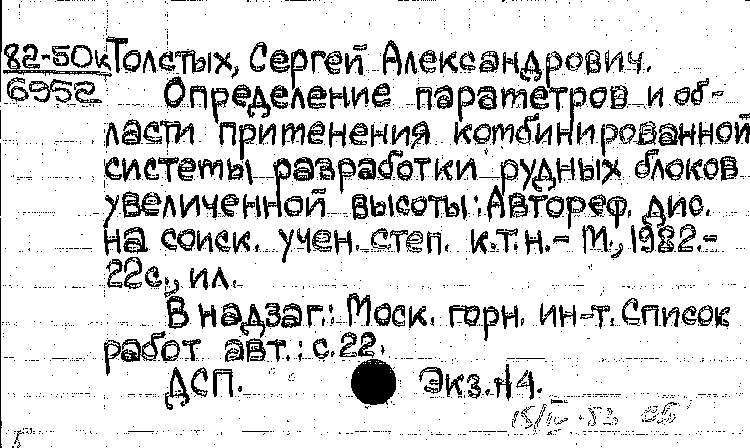 82-50к Толстых, Сергей Александрович.
6952 Определение параметров и об-
ласти применения комбинированной
системы разработки рудных блоков
увеличенной высоты: Автореф. дис.
на соиск. учен. степ. к.т.н.- М., 1982.-
22с., ил.
В надзаг.: Моск. горн. ин-т. Список
работ авт.: с.22.
ДСП. Экз. 14.
15/IV-83